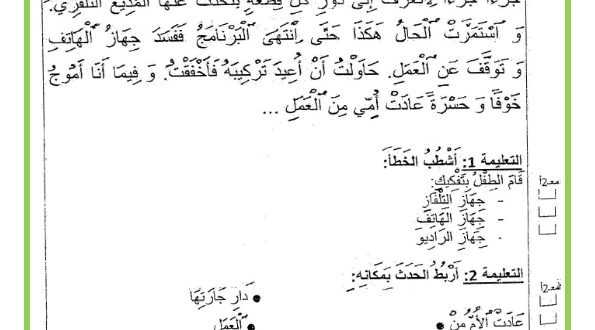 جُزْءًا جُزْءًا لِأَتَعَرَّفَ إِلَى دَوْرِ كُلِّ قِطْعَةٍ يَتَحَدَّثُ عَنْهَا الْمُذِيعُ التِّلْفَزِيُّ.
وَ اسْتَمَرَّتْ الْحَالُ هَكَذَا حَتَّى اِنْتَهَى الْبَرْنَامَجُ فَفَسَدَ جِهَازُ الْهَاتِفِ
وَ تَوَقَّفَ عَنِ الْعَمَلِ. حَاوَلْتُ أَنْ أُعِيدَ تَرْكِيبَهُ فَأَخْفَقْتُ. وَ فِيمَا أَنَا أَمُوجُ
خَوْفًا وَ حَسْرَةً عَادَتْ أُمِّي مِنَ الْعَمَلِ ...
التعليمة 1: أَشْطُبُ الخَطَأَ:
قَامَ الطِّفْلُ بِتَفْكِيكِ:
- جِهَازِ التِّلْفَازِ
- جِهَازِ الهَاتِفِ
- جِهَازِ الرَّادِيو
مع2أ
التعليمة 2: أَرْبُطُ الْحَدَثَ بِمَكَانِهِ:
عَادَتْ الأُمُّ مِنْ •
• دَارِ جَارَتِهَا
• الْعَمَلِ